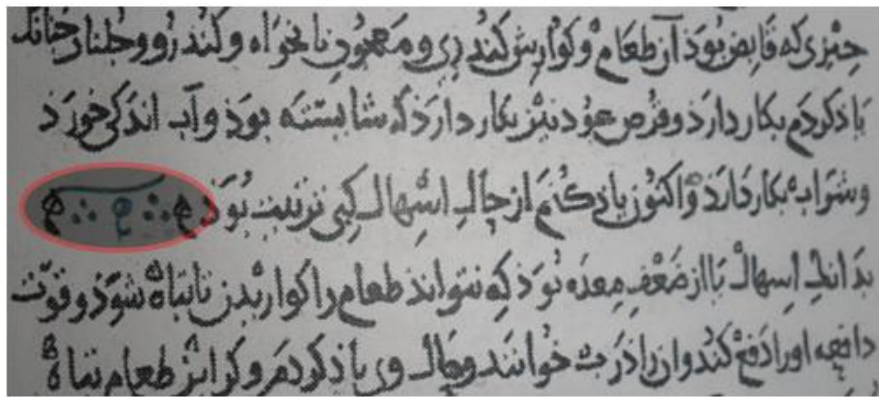 چیزی که قابض بوذ آن طعام و کوارش کندری و معجون نانخواه و کندرو و جلنار چنانک
یاذ کردم بکار دارذ و قرص عود نیز بکار دارذ که شایسته بوذ و آب اندکی خورذ
و شراب بکار دارذ و اکنون یاذ کنم از حال اسهال کبی ترتیب بوذ
بدانک اسهال یا از ضعف معده بوذ که نتواند طعام را کواریدن تا تباه شوذ و قوت
دافعه او را دفع کند و ان را ذرب خوانند و حال وی یاذ کردم و کر از طعام تباه